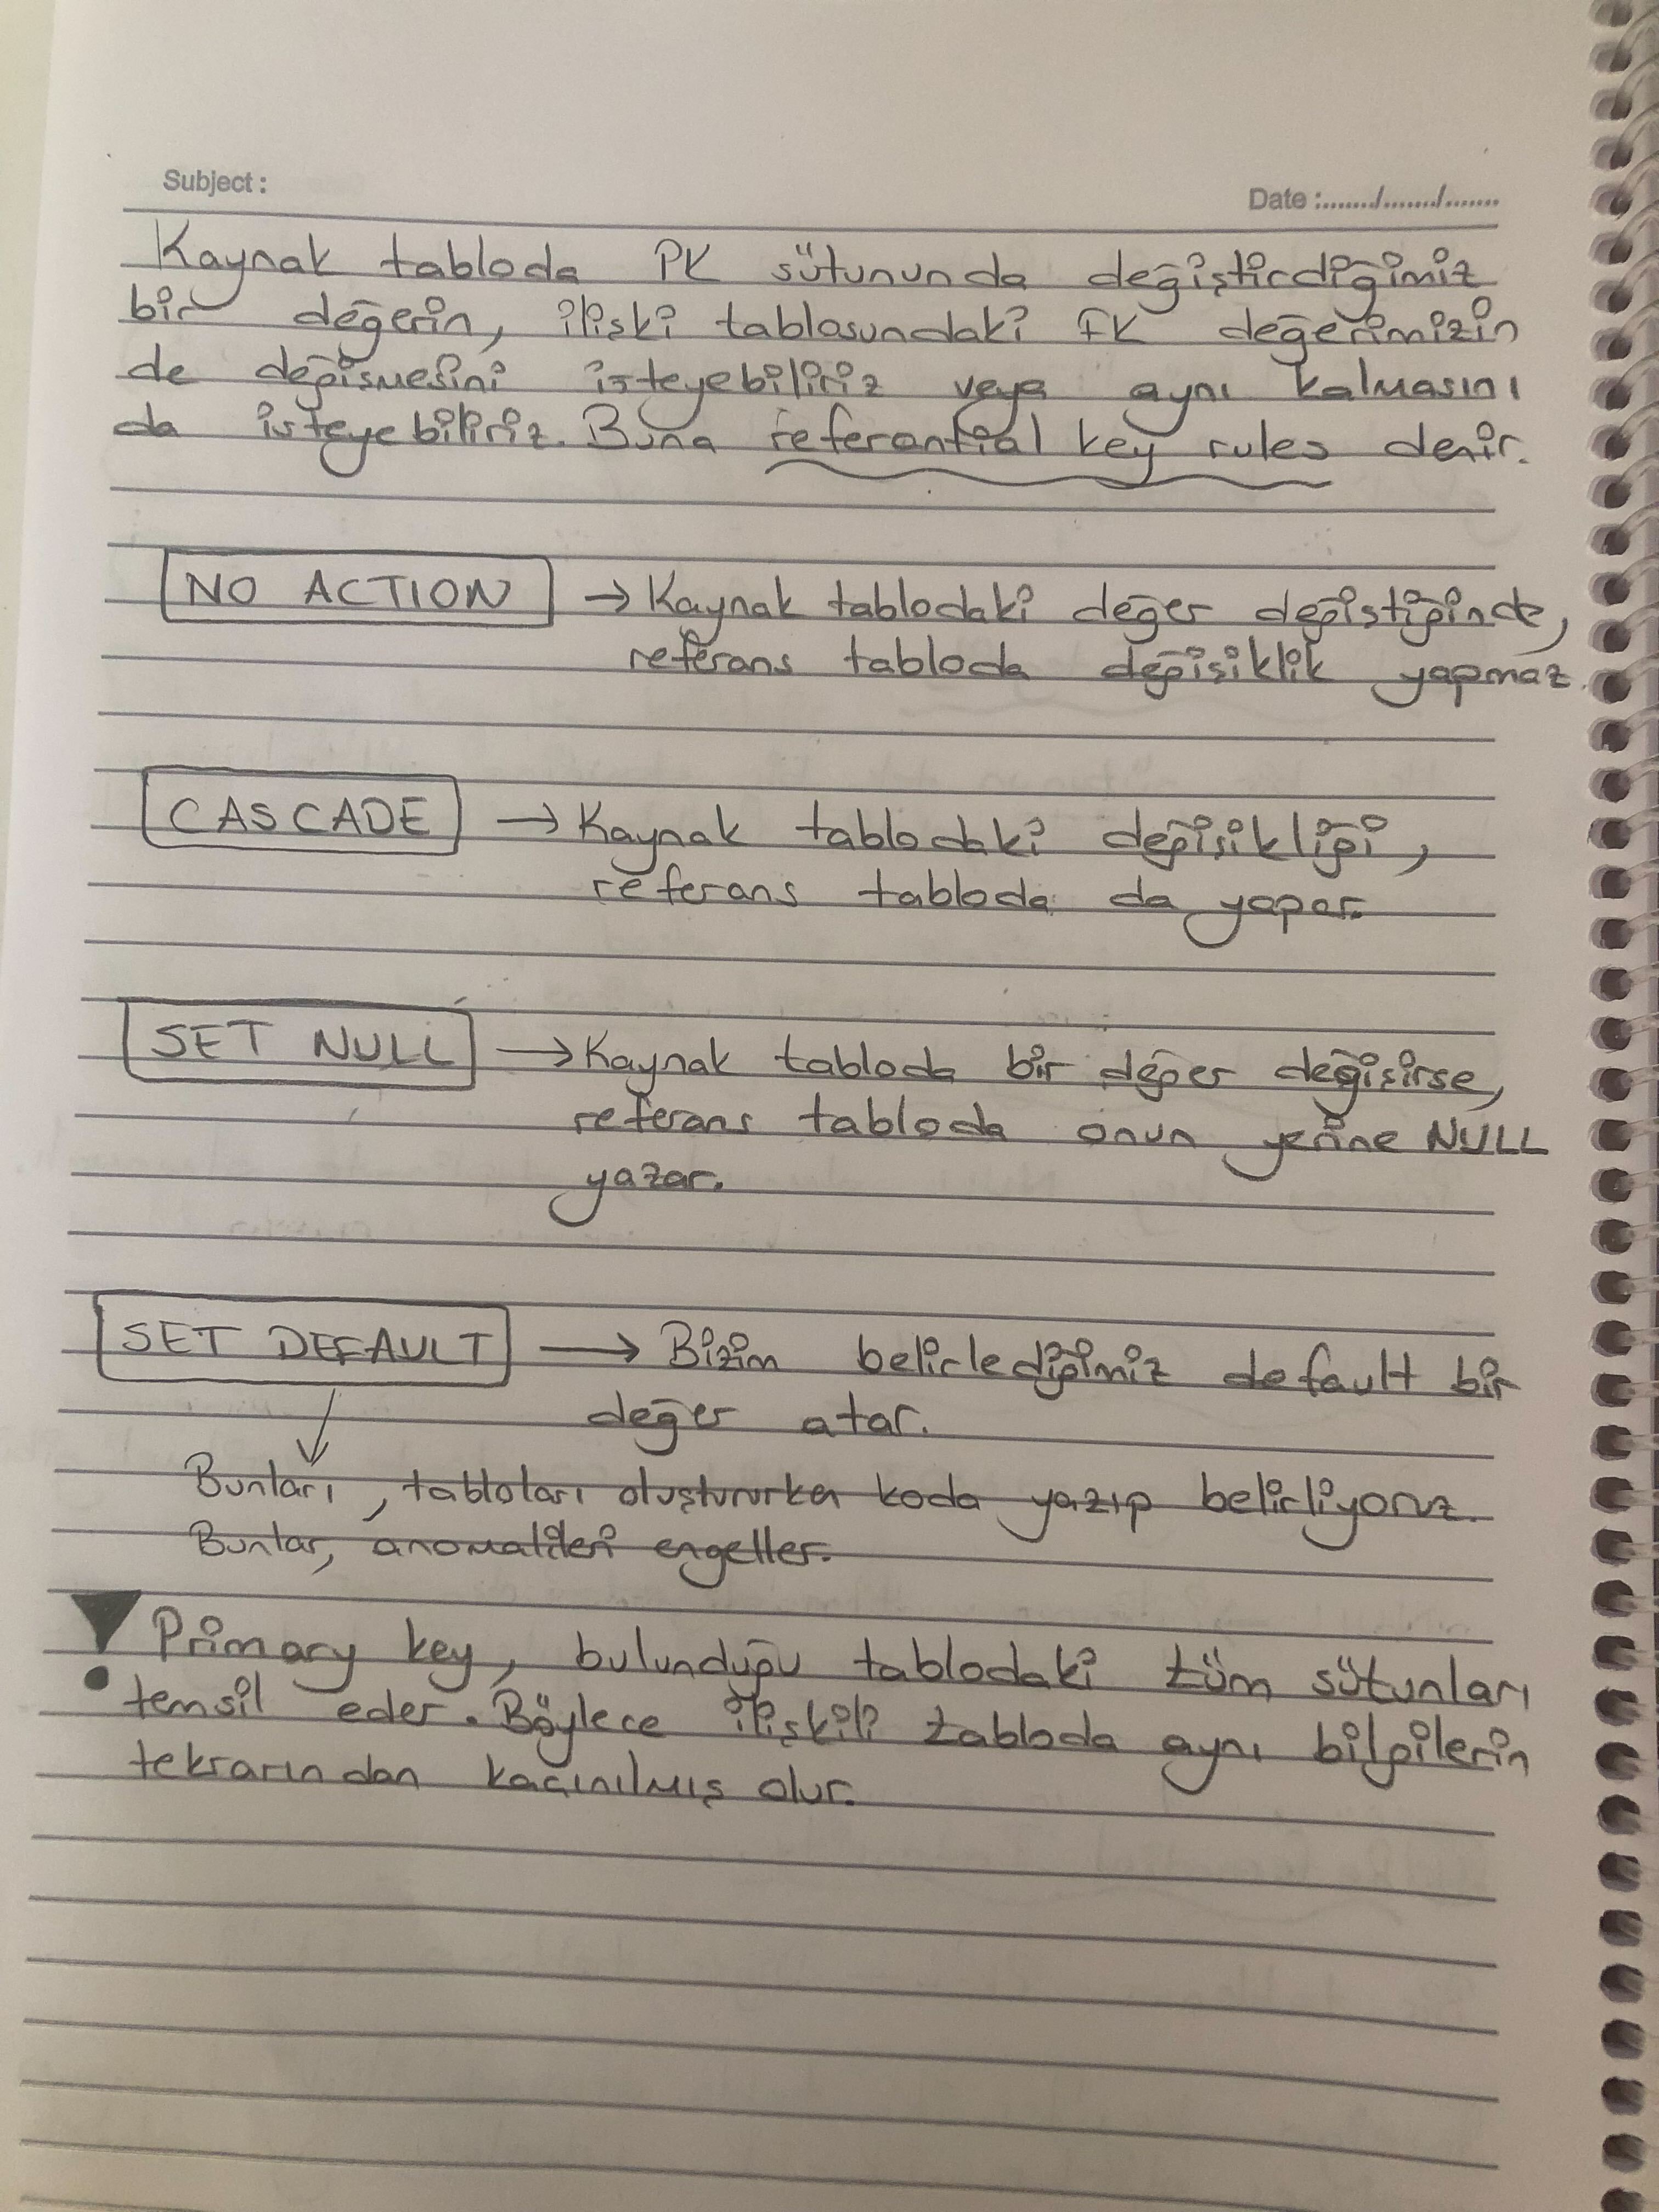 Subject :
Date :......./......./.......
Kaynak tabloda PK sütununda değiştirdiğimiz
bir değerin, ilişki tablosundaki FK değerimizin
de değişmesini isteyebiliriz veya aynı kalmasını
da isteyebiliriz. Buna referantial key rules denir.
NO ACTION → Kaynak tablodaki değer değiştiğinde,
referans tabloda değişiklik yapmaz.
CASCADE → Kaynak tablodaki değişikliği,
referans tabloda da yapar.
SET NULL → Kaynak tabloda bir değer değişirse,
referans tabloda onun yerine NULL
yazar.
SET DEFAULT → Bizim belirlediğimiz default bir
değer atar.
Bunları, tabloları oluştururken koda yazıp belirliyoruz.
Bunlar, anomalileri engeller.
Primary key, bulunduğu tablodaki tüm sütunları
temsil eder. Böylece ilişkili tabloda aynı bilgilerin
tekrarından kaçınılmış olur.